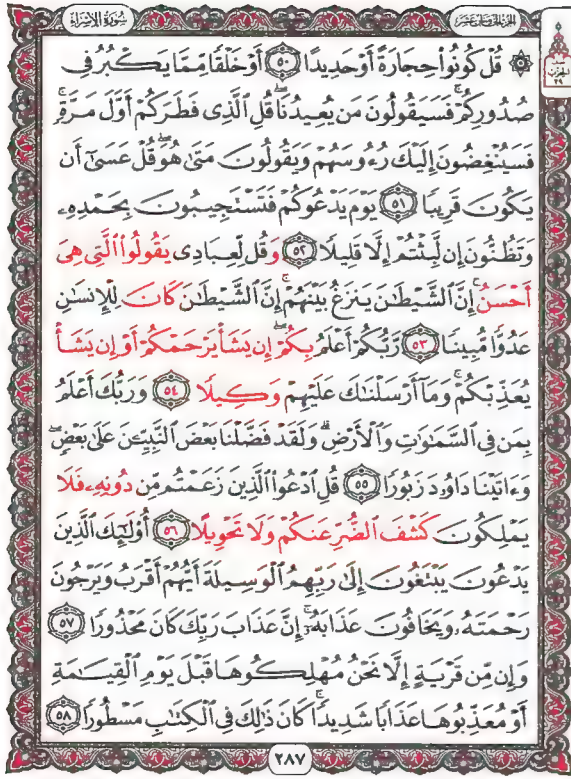 الجزء الخامس عشر
سُورَةُ الإِسْرَاءِ
الحزب
٢٩
۞ قُلْ كُونُوا۟ حِجَارَةً أَوْ حَدِيدًا ٥٠ أَوْ خَلْقًا مِّمَّا يَكْبُرُ فِى
صُدُورِكُمْ ۚ فَسَيَقُولُونَ مَن يُعِيدُنَا ۖ قُلِ ٱلَّذِى فَطَرَكُمْ أَوَّلَ مَرَّةٍ ۚ
فَسَيُنْغِضُونَ إِلَيْكَ رُءُوسَهُمْ وَيَقُولُونَ مَتَىٰ هُوَ ۖ قُلْ عَسَىٰٓ أَن
يَكُونَ قَرِيبًا ٥١ يَوْمَ يَدْعُوكُمْ فَتَسْتَجِيبُونَ بِحَمْدِهِۦ
وَتَظُنُّونَ إِن لَّبِثْتُمْ إِلَّا قَلِيلًا ٥٢ وَقُل لِّعِبَادِى يَقُولُوا۟ ٱلَّتِى هِىَ
أَحْسَنُ ۚ إِنَّ ٱلشَّيْطَـٰنَ يَنزَغُ بَيْنَهُمْ ۚ إِنَّ ٱلشَّيْطَـٰنَ كَانَ لِلْإِنسَـٰنِ
عَدُوًّا مُّبِينًا ٥٣ رَّبُّكُمْ أَعْلَمُ بِكُمْ ۖ إِن يَشَأْ يَرْحَمْكُمْ أَوْ إِن يَشَأْ
يُعَذِّبْكُمْ ۚ وَمَآ أَرْسَلْنَـٰكَ عَلَيْهِمْ وَكِيلًا ٥٤ وَرَبُّكَ أَعْلَمُ
بِمَن فِى ٱلسَّمَـٰوَٰتِ وَٱلْأَرْضِ ۗ وَلَقَدْ فَضَّلْنَا بَعْضَ ٱلنَّبِيِّـۧنَ عَلَىٰ بَعْضٍ ۖ
وَءَاتَيْنَا دَاوُۥدَ زَبُورًا ٥٥ قُلِ ٱدْعُوا۟ ٱلَّذِينَ زَعَمْتُم مِّن دُونِهِۦ فَلَا
يَمْلِكُونَ كَشْفَ ٱلضُّرِّ عَنكُمْ وَلَا تَحْوِيلًا ٥٦ أُو۟لَـٰٓئِكَ ٱلَّذِينَ
يَدْعُونَ يَبْتَغُونَ إِلَىٰ رَبِّهِمُ ٱلْوَسِيلَةَ أَيُّهُمْ أَقْرَبُ وَيَرْجُونَ
رَحْمَتَهُۥ وَيَخَافُونَ عَذَابَهُۥٓ ۚ إِنَّ عَذَابَ رَبِّكَ كَانَ مَحْذُورًا ٥٧
وَإِن مِّن قَرْيَةٍ إِلَّا نَحْنُ مُهْلِكُوهَا قَبْلَ يَوْمِ ٱلْقِيَـٰمَةِ
أَوْ مُعَذِّبُوهَا عَذَابًا شَدِيدًا ۚ كَانَ ذَٰلِكَ فِى ٱلْكِتَـٰبِ مَسْطُورًا ٥٨
٢٨٧